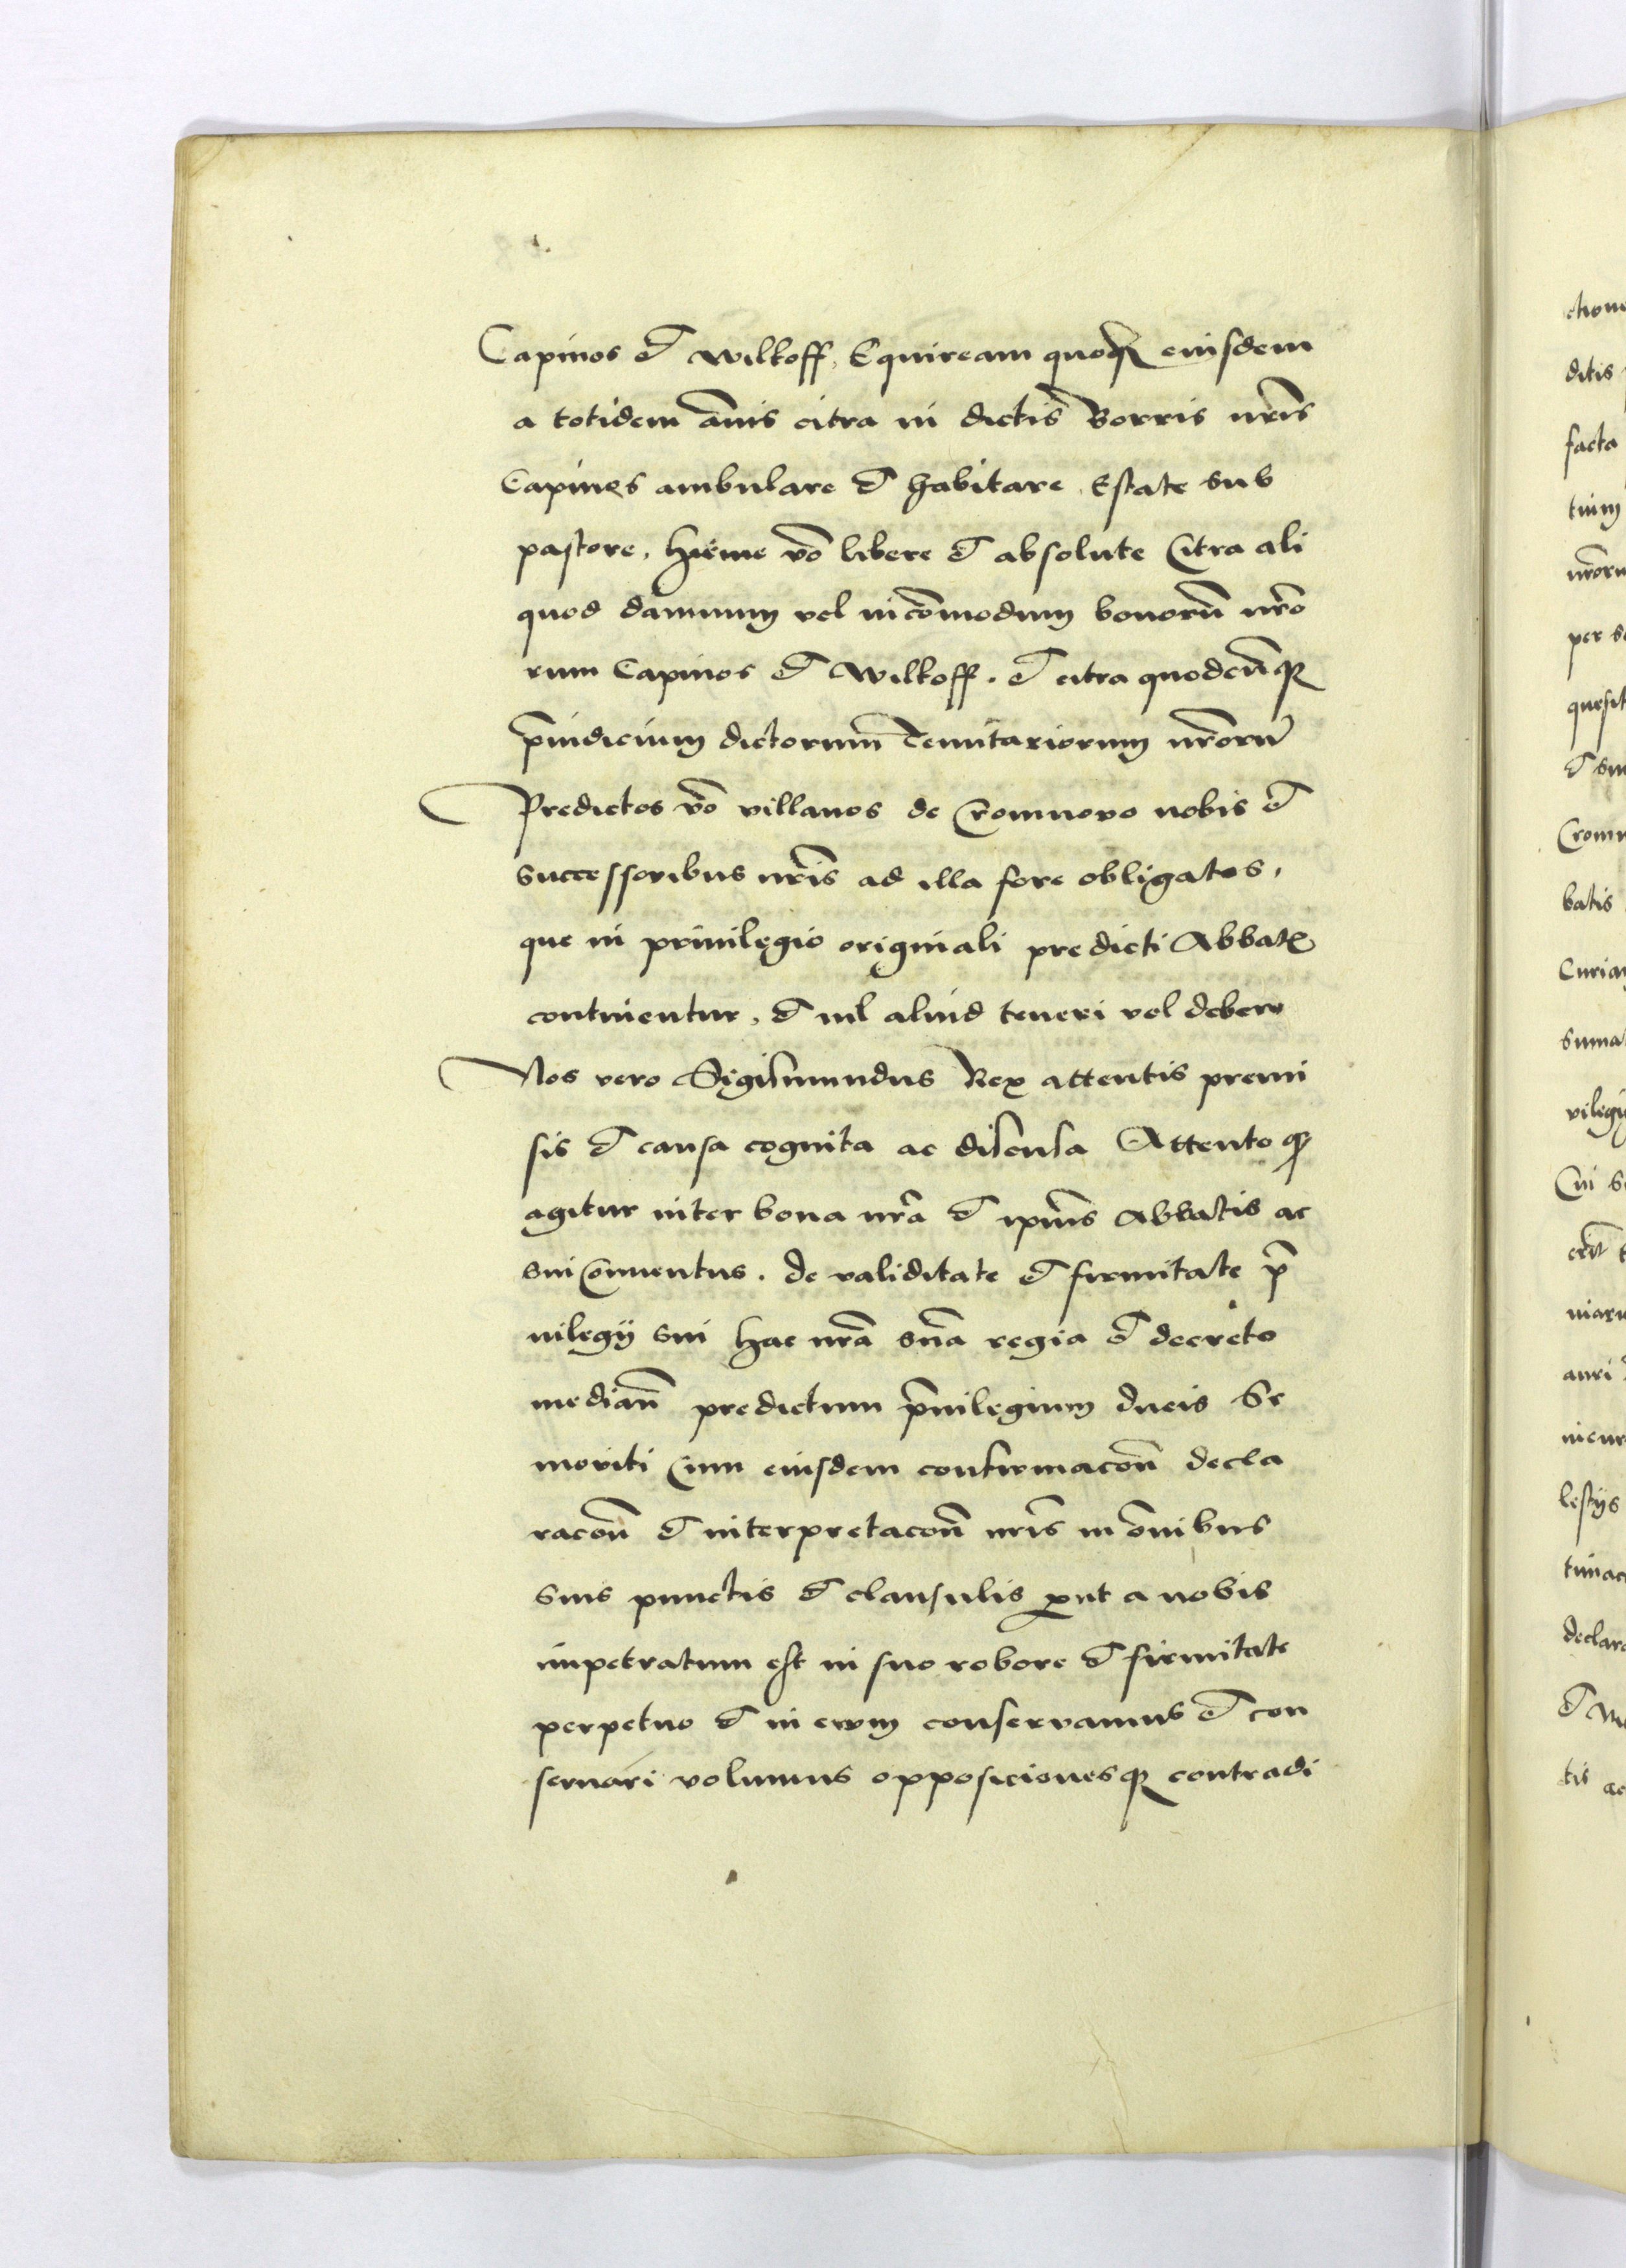 Capinos et Wilkoff, Equiream quoq3 eiusdem
a totidem ānis citra in dictis Borris nr̄is
Capinos ambulare et habitare, Estate sub
pastore, hieme vo̅ libere et absolute Citra ali
quod damnum vel inco̅modum bonoru̅ nr̄o
rum Capinos et Wilkoff. et citra quodcu̅q3
p̄iudicium dictorum Tenutariorum nr̄oru̅
Predictos vo̅ villanos de Cromnovo nobis et
successoribus nr̄is ad illa fore obligatos,
que in privilegio originali predicti Abbatꝭ
continentur, et nil aliud teneri vel debere
Nos vero Sigismundus Rex attentis premi
sis et causa cognita ac discussa Attento q3
agitur inter bona nr̄a et ip̄ius Abbatis ac
sui Conventus. de validitate et firmitate p̄
vilegij sui hac nr̄a sn̄a regia et decreto
median̄ predictum p̄vilegium ducis Se
moviti Cum eiusdem confirmacōn decla
racōn et interpretacōn nr̄is in o̅nibus
suis punctis et clausulis ꝓut a nobis
impetratum est in suo robore et firmitate
perpetuo et in evum conservamus et con
servari volumus opposicionesq3 contradi
ctione
ditis
facta
nr̄oru
per s
quesit
et su
Crom
batis
Curia
suma
vilegi
Cui s
auri
declara
tis ac